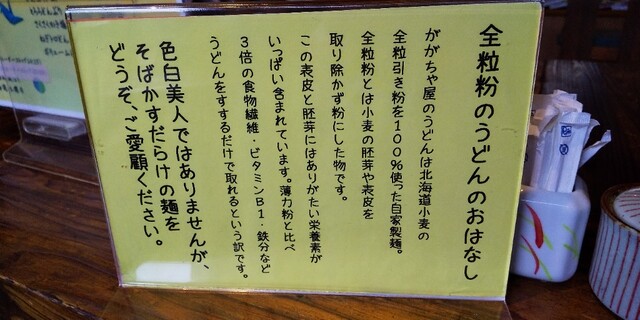 全粒粉のうどんのおはなし
ががちゃ屋のうどんは北海道小麦の
全粒引き粉を１００％使った自家製麺。
全粒粉とは小麦の胚芽や表皮を
取り除かず粉にした物です。
この表皮と胚芽にはありがたい栄養素が
いっぱい含まれています。薄力粉と比べ
３倍の食物繊維・ビタミンＢ１・鉄分など
うどんをすするだけで取れるという訳です。
色白美人ではありませんが、
そばかすだらけの麺を
どうぞ、ご愛顧ください。